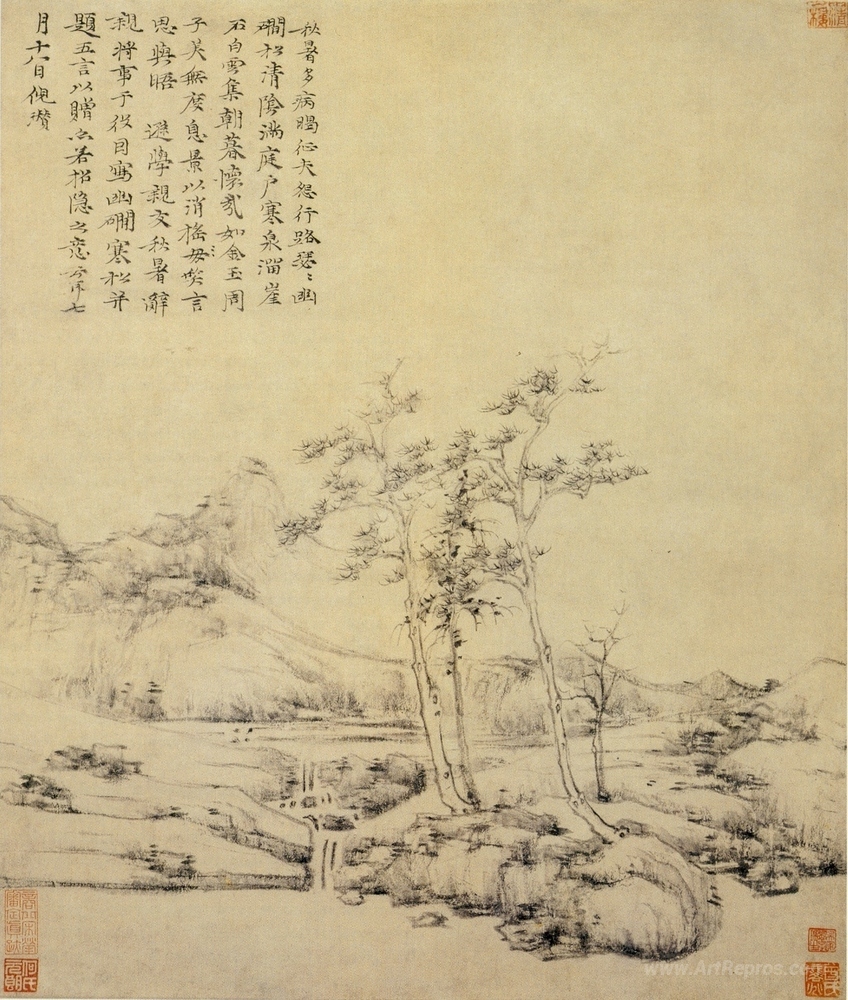 秋暑多病暍征夫怨行路瑟〻幽
磵松清陰滿庭戶寒泉溜崖
石白雲集朝暮懷哉如金玉周
子美無度息景以消搖毋笑言
思與晤 遜學親友秋暑辭
親將事于役因寫幽磵寒松并
題五言以贈亦若招隱之意云耳七
月十八日倪瓚
www.ArtRepros.com